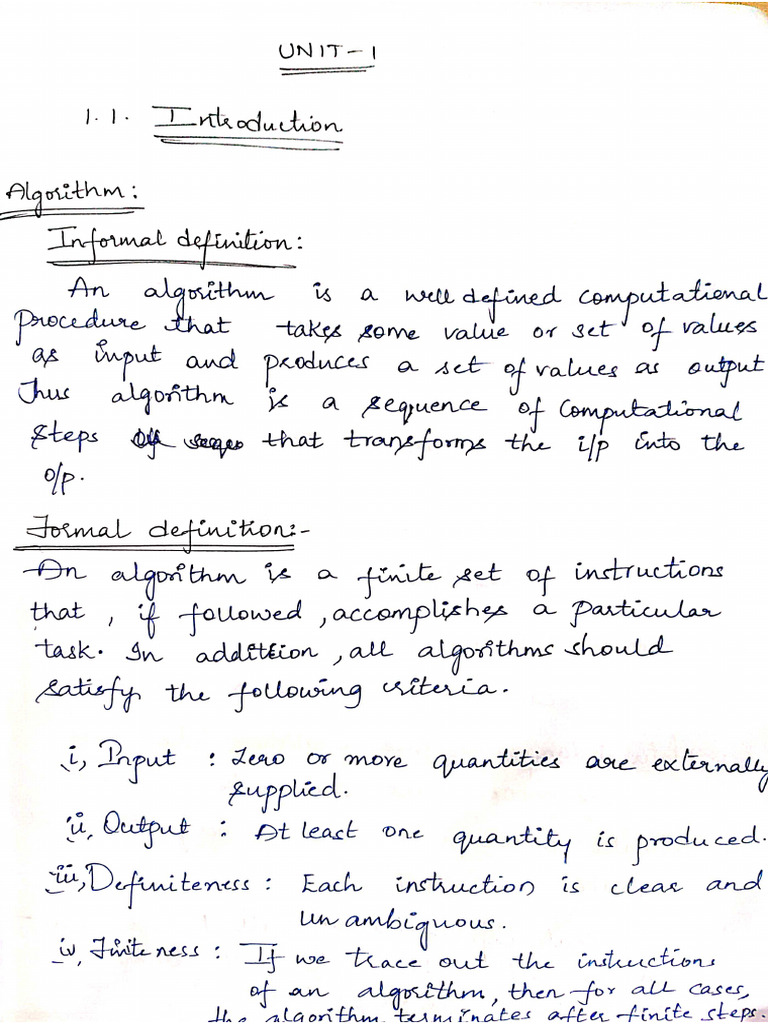 UNIT-1
1.1. Introduction
Algorithm:
Informal definition:
An algorithm is a well defined computational
procedure that takes some value or set of values
as input and produces a set of values as output
Thus algorithm is a sequence of computational
steps that transforms the i/p into the
o/p.
Formal definition:-
An algorithm is a finite set of instructions
that, if followed, accomplishes a particular
task. In addittion, all algorithms should
satisfy the following criteria.
i, Input : Zero or more quantities are externally
supplied.
ii, Output : At least one quantity is produced.
iii, Definiteness : Each instruction is clear and
unambiguous.
iv, Finiteness : If we trace out the instructions
of an algorithm, then for all cases,
the algorithm terminates after finite steps.